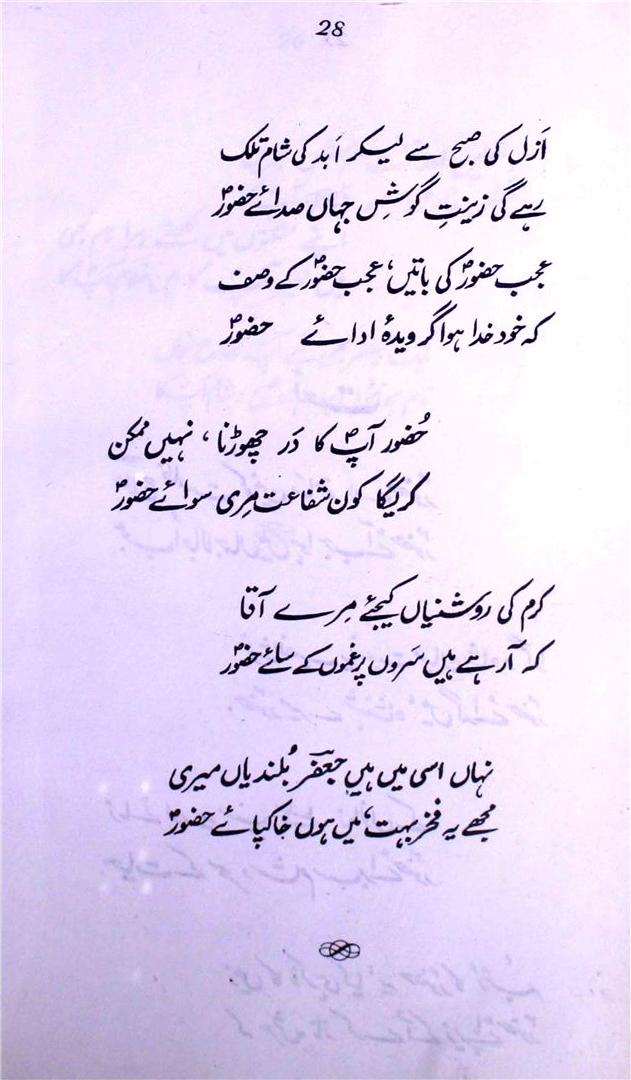 28
اَزل کی صبح سے لیکر اَبد کی شام تلک
رہے گی زینتِ گوشِ جہاں صدائے حضورؐ
عجب حضورؐ کی باتیں، عجب حضورؐ کے وصف
کہ خود خدا ہوا گرویدۂ ادائے حضورؐ
حُضور آپؐ کا دَر چھوڑنا، نہیں ممکن
کریگا کون شفاعت مِری سوائے حضورؐ
کرم کی روشنیاں کیجئے مِرے آقا
کہ آ رہے ہیں سَروں پر غموں کے سائے حضورؐ
نہاں اسی میں ہیں جعفر بُلندیاں میری
مجھے یہ فخر بہت، میں ہوں خاکپائے حضورؐ